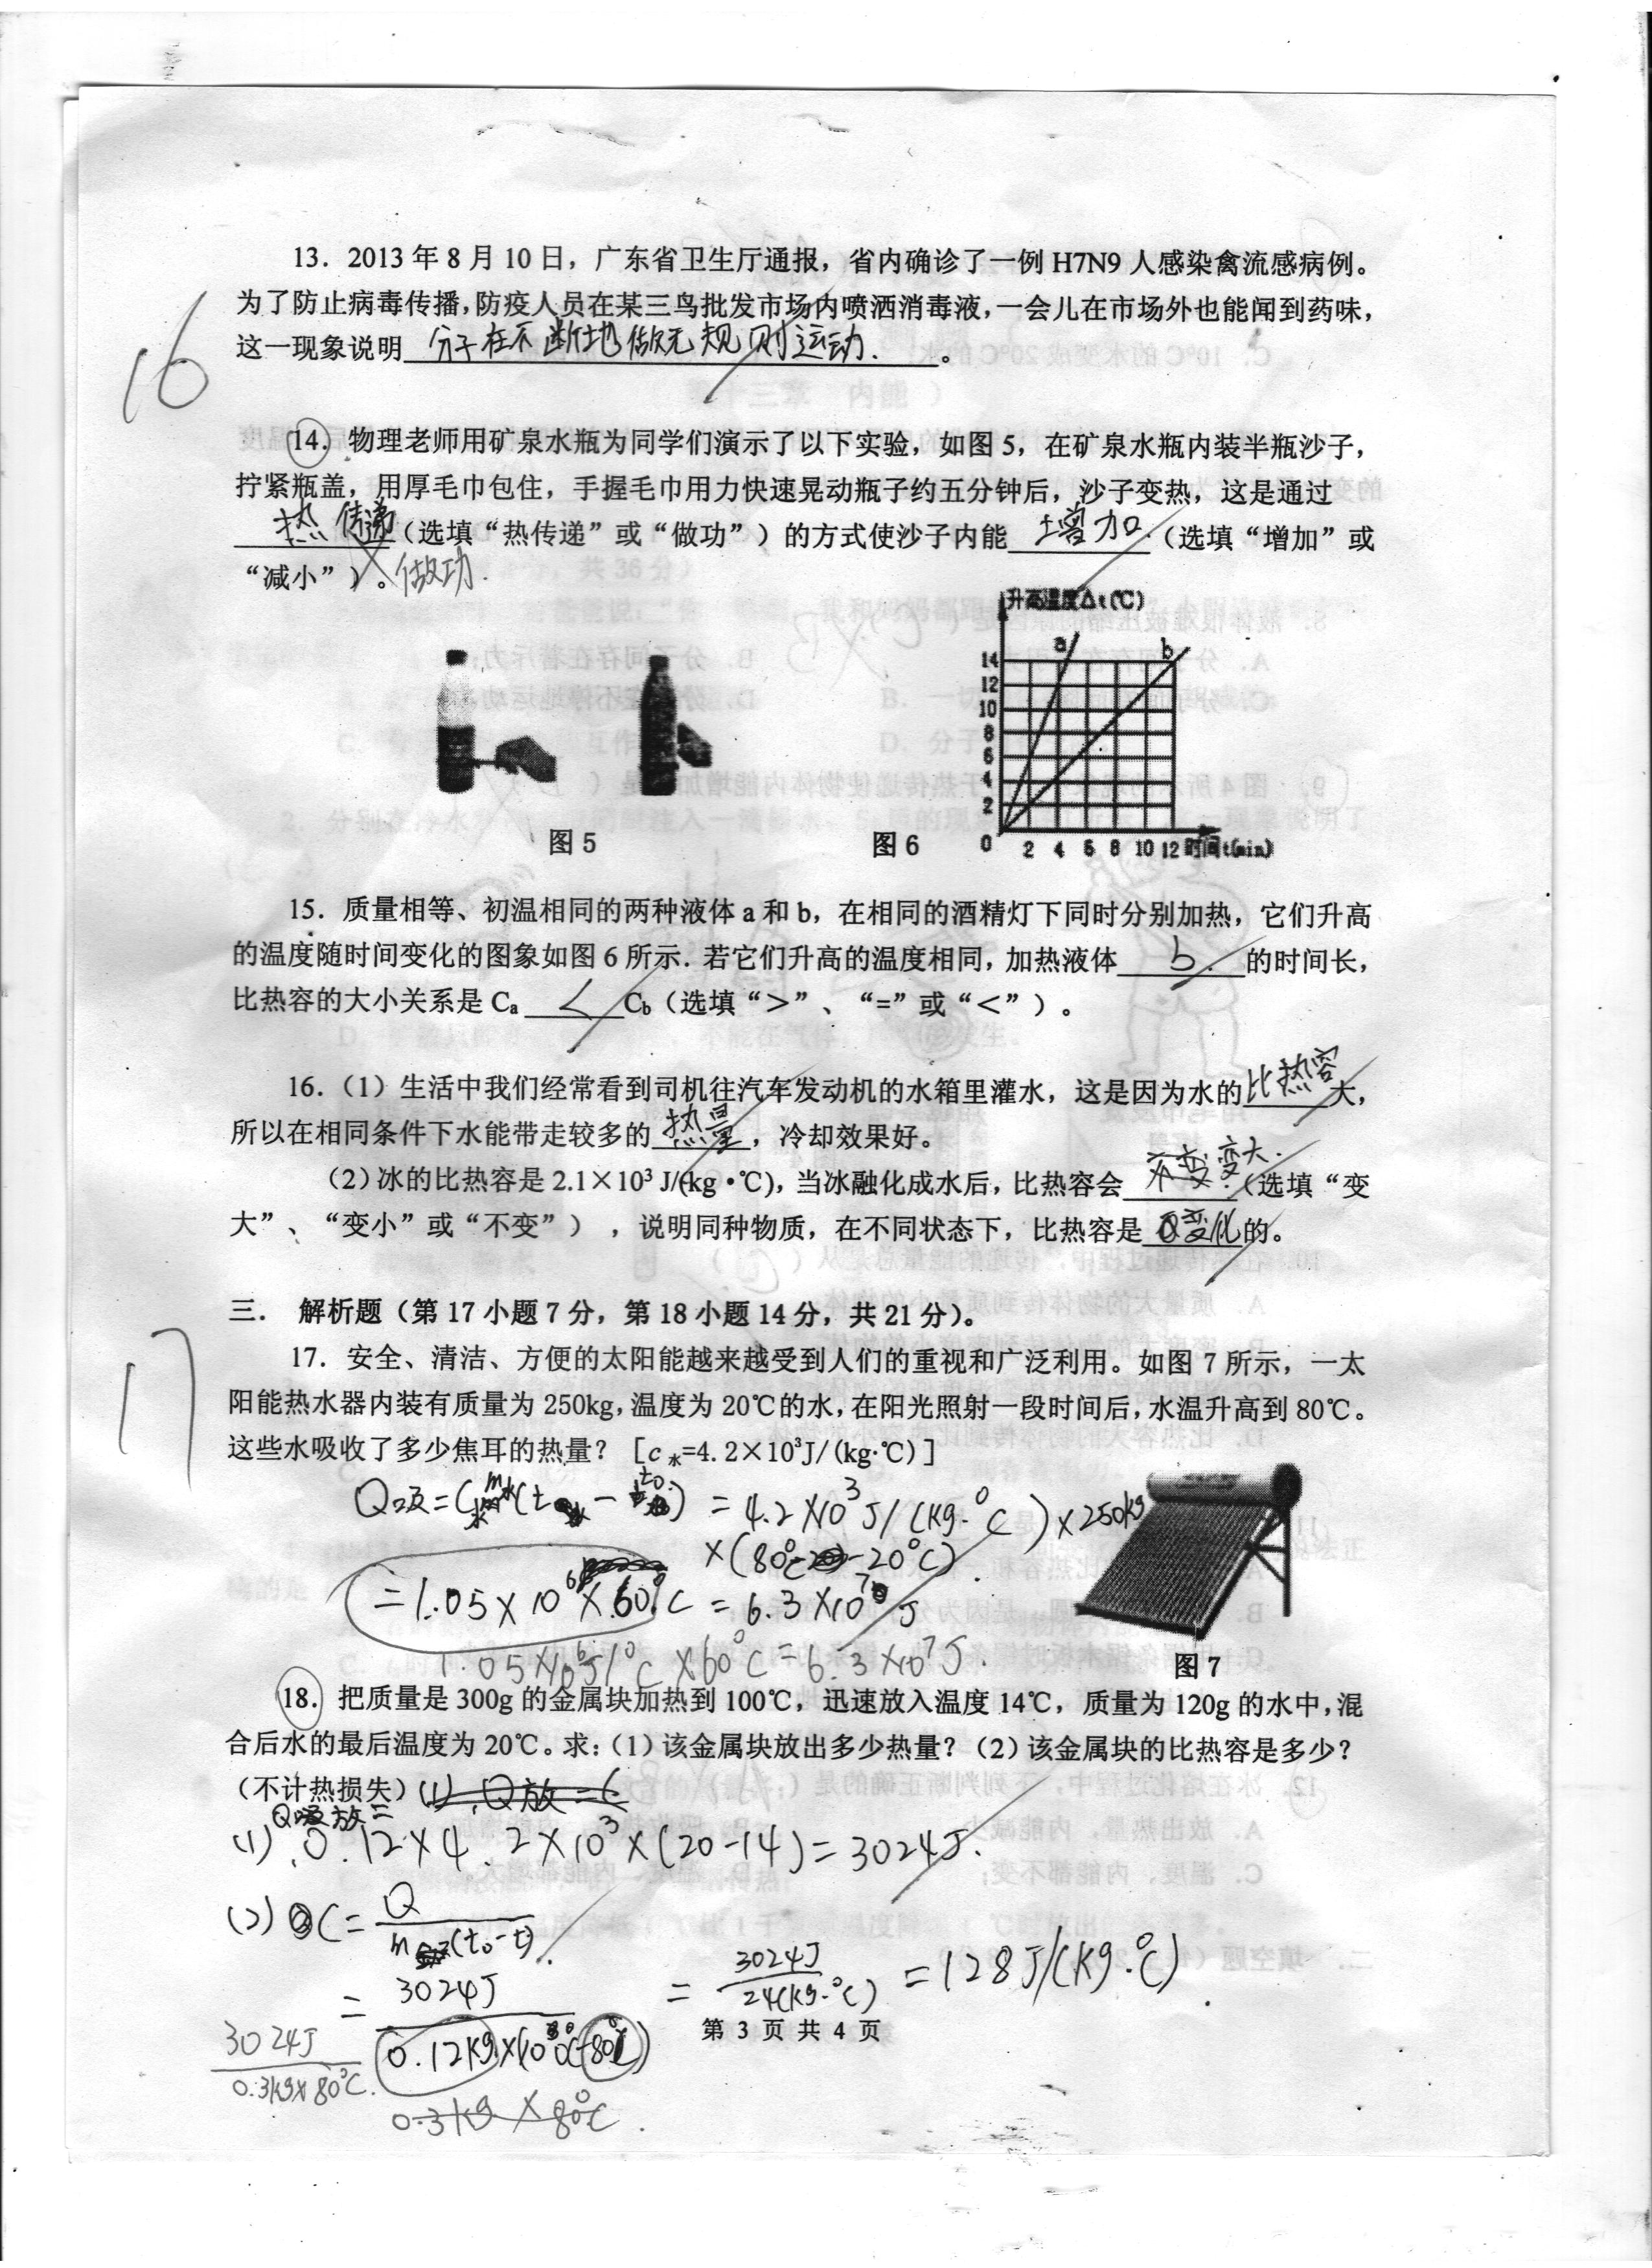 13. 2013年8月10日，广东省卫生厅通报，省内确诊了一例H7N9人感染禽流感病例。
为了防止病毒传播，防疫人员在某三鸟批发市场内喷洒消毒液，一会儿在市场外也能闻到药味，
这一现象说明 分子在不断地做无规则运动. 。
16
14. 物理老师用矿泉水瓶为同学们演示了以下实验，如图5，在矿泉水瓶内装半瓶沙子，
拧紧瓶盖，用厚毛巾包住，手握毛巾用力快速晃动瓶子约五分钟后，沙子变热，这是通过
热传递（选填“热传递”或“做功”）的方式使沙子内能 增加（选填“增加”或
“减小”）。做功.
升高温度Δt(℃)
a b
14
12
10
8
6
4
2
0 2 4 6 8 10 12 时间t(min)
图5 图6
15. 质量相等、初温相同的两种液体a和b，在相同的酒精灯下同时分别加热，它们升高
的温度随时间变化的图象如图6所示. 若它们升高的温度相同，加热液体 b. 的时间长，
比热容的大小关系是Ca < Cb（选填“>”、“=”或“<”）。
16.（1）生活中我们经常看到司机往汽车发动机的水箱里灌水，这是因为水的比热容大，
所以在相同条件下水能带走较多的 热量，冷却效果好。
（2）冰的比热容是2.1×10³ J/(kg·℃)，当冰融化成水后，比热容会 不变 变大.（选填“变
大”、“变小”或“不变”），说明同种物质，在不同状态下，比热容是 变化的。
三. 解析题（第17小题7分，第18小题14分，共21分）。
17
17. 安全、清洁、方便的太阳能越来越受到人们的重视和广泛利用。如图7所示，一太
阳能热水器内装有质量为250kg，温度为20℃的水，在阳光照射一段时间后，水温升高到80℃。
这些水吸收了多少焦耳的热量？［c水=4.2×10³J/(kg·℃)］
Q吸=C水m水(t-t0) =4.2×10³J/(kg·℃)×250kg
×(80℃-20℃).
=1.05×10⁶×60℃=6.3×10⁷J
1.05×10⁶J/℃×60℃=6.3×10⁷J.
图7
18. 把质量是300g的金属块加热到100℃，迅速放入温度14℃，质量为120g的水中，混
合后水的最后温度为20℃。求：（1）该金属块放出多少热量？（2）该金属块的比热容是多少？
（不计热损失）(1). Q放=C
Q放=
(1) 0.12×4.2×10³×(20-14)=3024J.
(2) C=Q/m(t0-t).
=3024J/0.12kg×(100℃-80℃) =3024J/24(kg·℃) =128J/(kg·℃).
第3页共4页
3024J/0.3kg×80℃.
0.3kg×80℃.